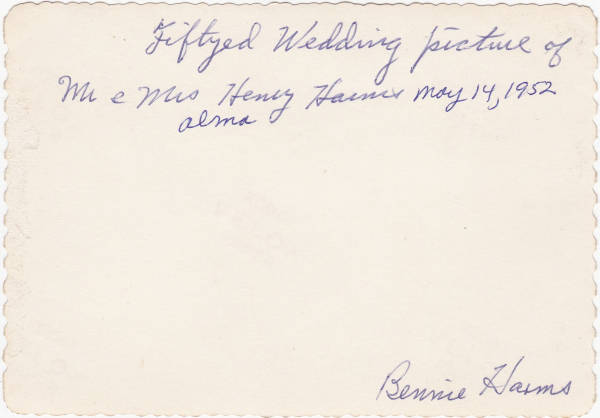 Fiftyed Wedding picture of
Mr e Mrs Henry Harms May 14, 1952
alma
Bennie Harms